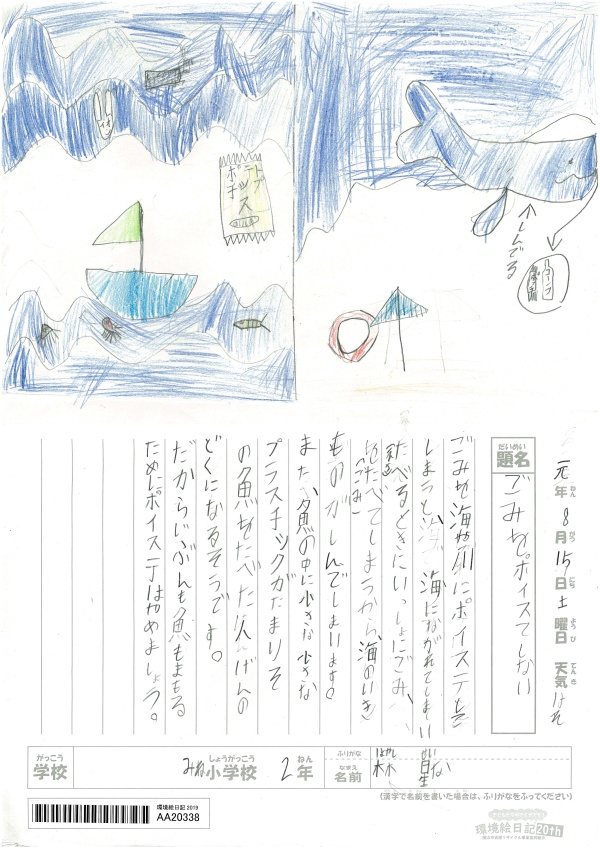 ポテト
チップ
ス
しんでる
だいめい
題名
ごみを。ポイスてしない
元年8月15日土曜日 天気はれ
ねん
がつ
にち
ようび
てんき
ごみを海や川にポイステしを
しまうと 海にながれてしまい
たべるときにいっしょにごみ、
をたべてしまうから海のいき
ものがしんでしまいます。
また、魚の中に小さな小さな
プラスチックがたまりそ
の魚をたべた人げんの
どくになるそうです。
だからじぶんも魚もまもる
ためにポイステはやめましょう。
がっこう
学校
しょうがっこう
小学校
ねん
2年
ふりがな
なまえ
名前
はやし せい
林 星な
(漢字で名前を書いた場合は、ふりがなをふってください)
環境絵日記 2019
AA20338
環境絵日記20th